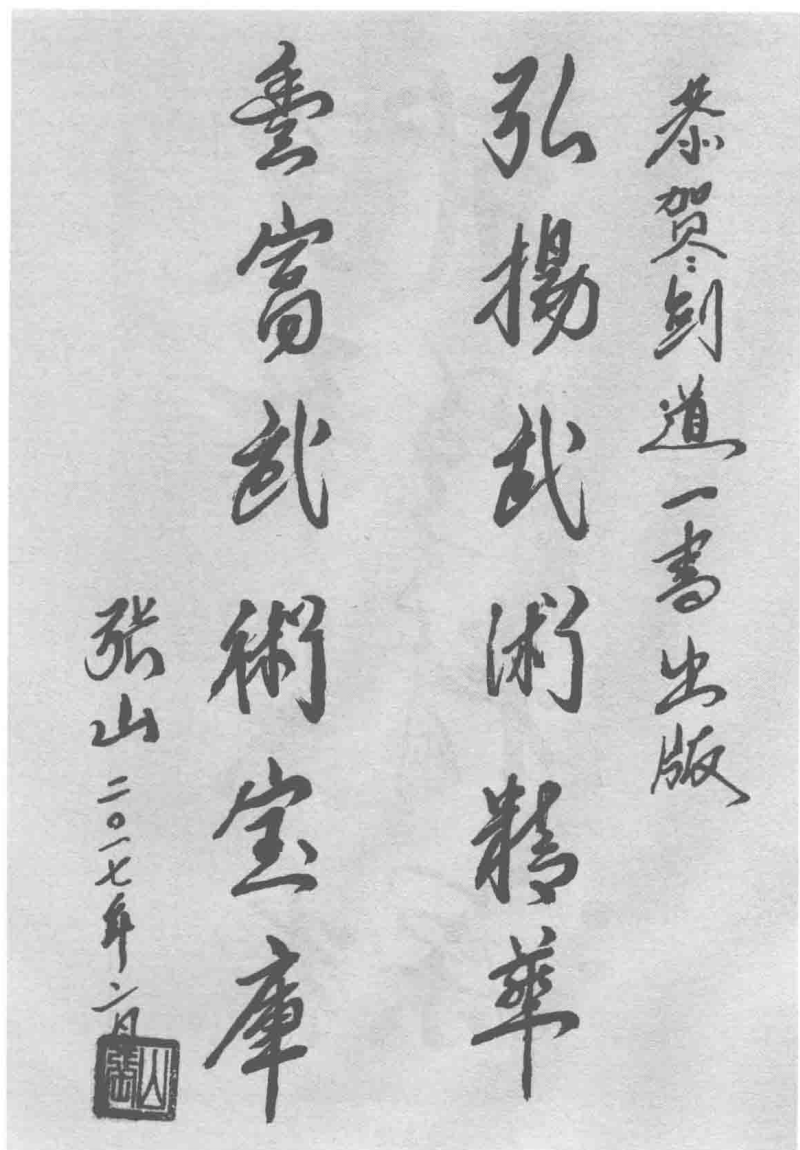 恭贺《剑道》一书出版
弘揚武術精華
豐富武術宝庫
张山 二〇一七年二月
張山